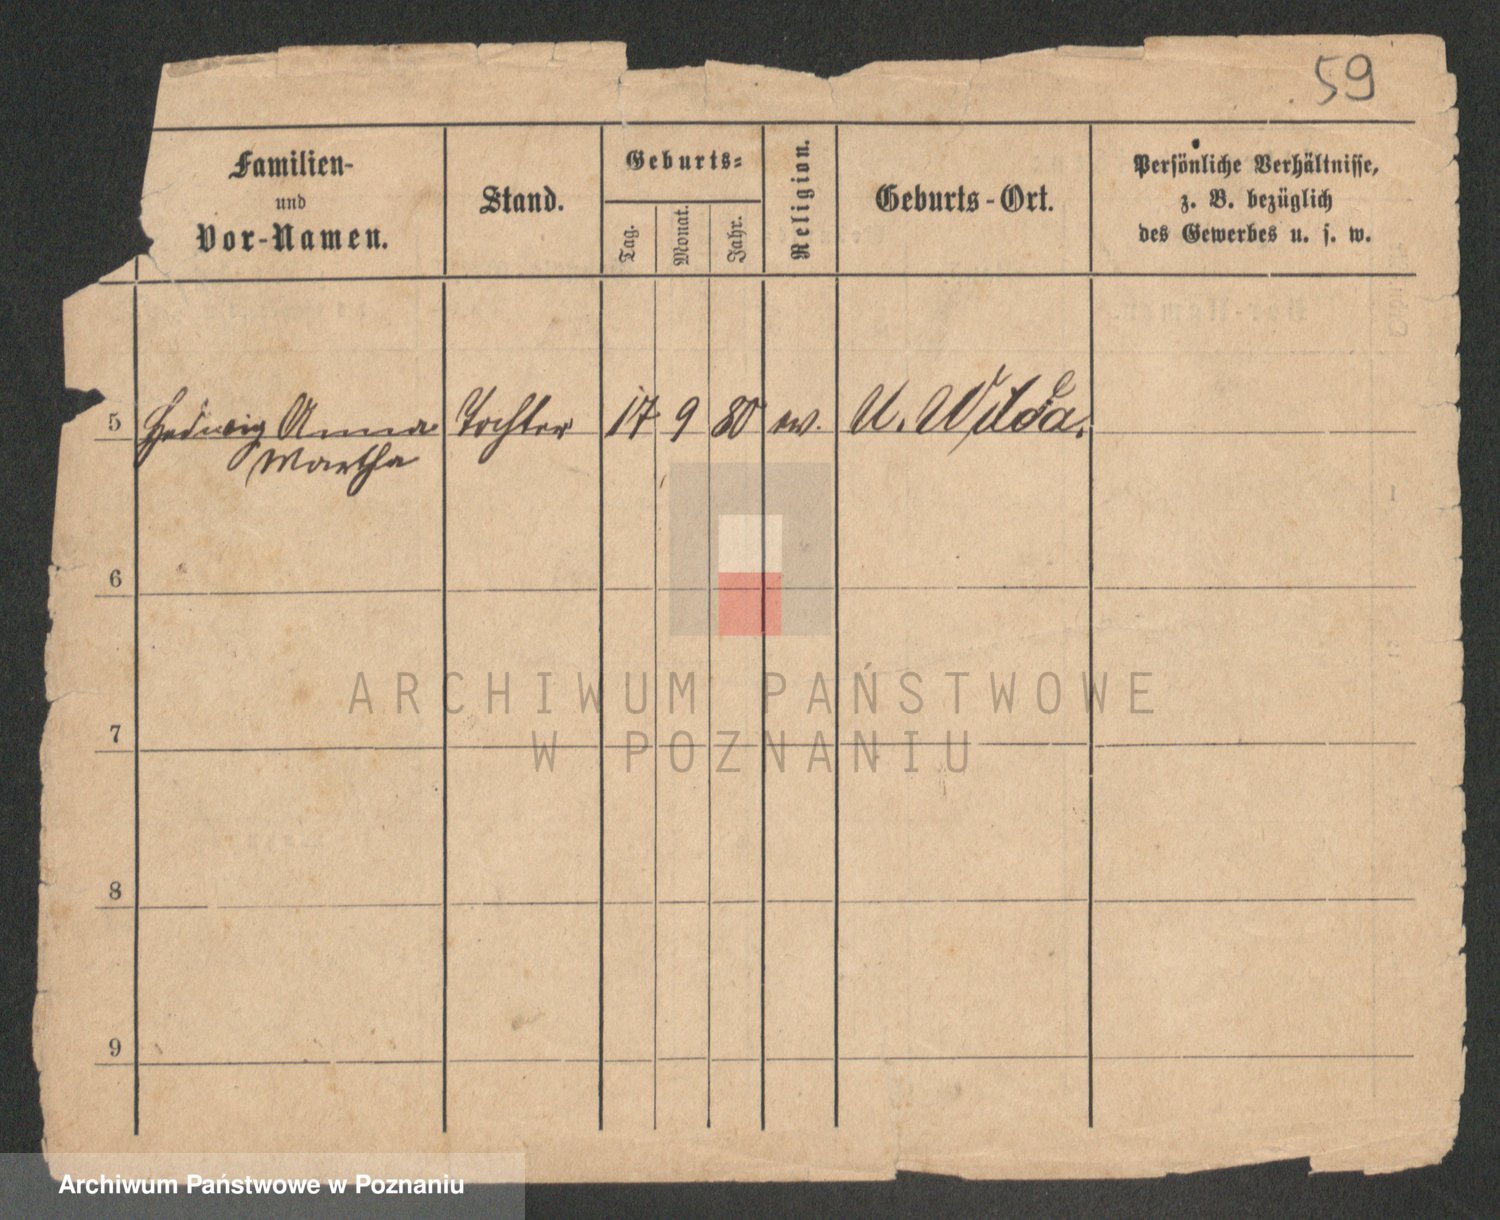 59
Familien-
und
Vor-Namen.
Stand.
Geburts-
Tag.
Monat.
Jahr.
Religion.
Geburts-Ort.
Persönliche Verhältnisse,
z. B. bezüglich
des Gewerbes u. s. w.
5 Hedwig Anna Tochter 17 9 80 ev. U. Wilda.
Martha
6
7
8
9
ARCHIWUM PAŃSTWOWE
W POZNANIU
Archiwum Państwowe w Poznaniu